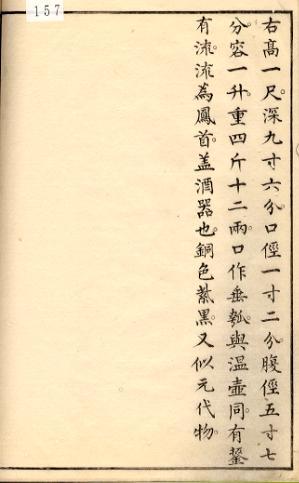 157
右高一尺深九寸六分口徑一寸二分腹徑五寸七
分容一升重四斤十二兩口作垂瓠與温壺同有鋬
有流流為鳳首盖酒器也銅色紫黑又似元代物